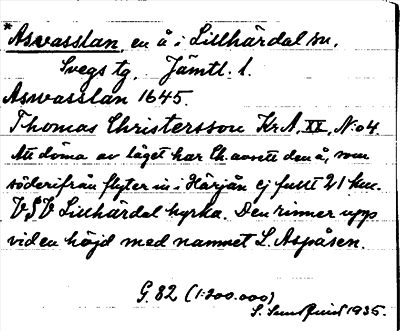 *Aswasslan, en å i Lillhärdal sn,
Svegs tg, Jämtl. l.
Aswasslan 1645.
Thomas Christersson KrA, XX, No 4.
Att döma av läget har Ch. avsett den å, som
söderifrån flyter in i Härjån ej fullt 21 km.
VSV Lillhärdal kyrka. Den rinner upp
vid en höjd med namnet L. Aspåsen.
G. 82 (1:200.000)
S. 1935.